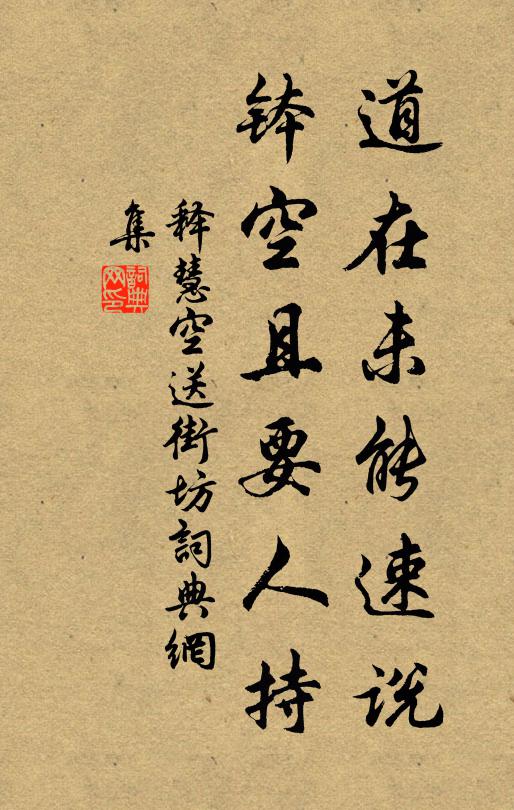 道在未能速说
钵空且要人持
释慧空送街坊詞典網
集
詞典网印